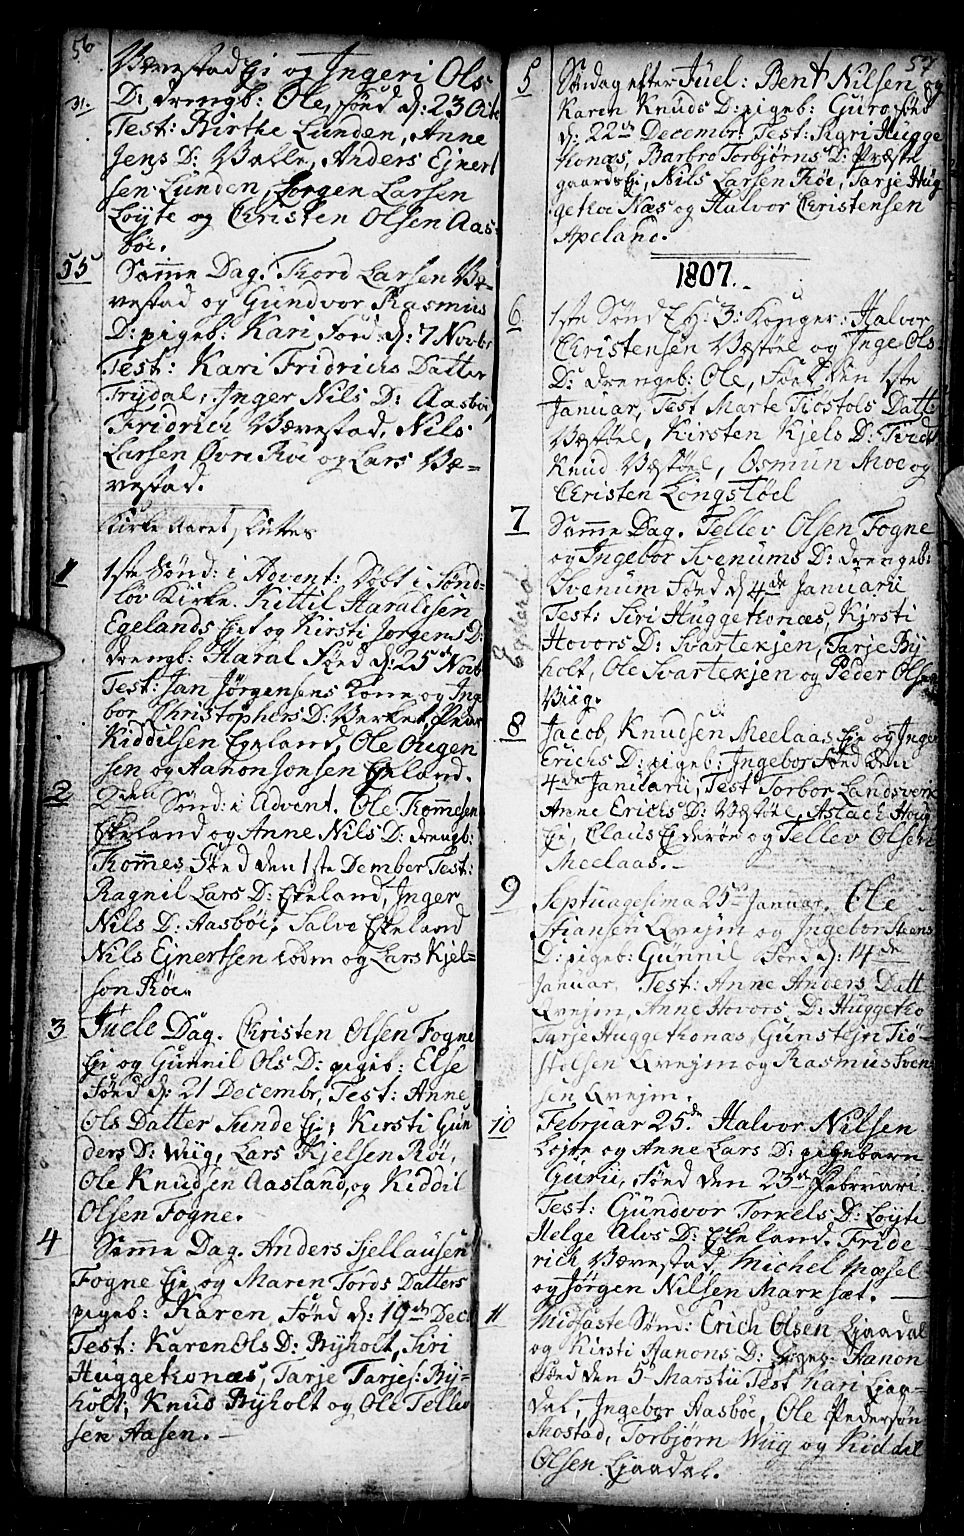 56
Bævestad Eje og Ingeri Ols
D: drengb: Ole, Fönd d: 23 Oct
Test: Birthe Lunden, Anne
Jens D: Balle, Anders Ejnert
sen Lunden, Jörgen Larsen
Löyte og Christen Olsen Aas-
böe.
55
Samme Dag. Thord Larsen Bæ-
vestad og Gundvor Rasmus
D: pigeb: Kari Föed d: 7 Novbr
Test: Kari Fridrichs Datter
Frydal, Inger Nils D: Aasböe
Fridrich Bævestad, Nils
Larsen Övre Röe og Lars Bæ-
vestad.
Kirke Aaret
1
1ste Sönd: i Advent: Döbt i Sönd-
löv Kirke. Kittil Haraldsen
Egelands Eje og Kirsti Jörgens D:
drengb: Haral Föed d: 25 Novb
Test: Jan Jörgensens Kone og Inge
bor Christophers D: Berket, Peder
Kiddilsen Egeland, Ole Ougen
sen og Aanon Jonsen Egeland.
2
2den Sönd: i Advent. Ole Tommesen
Egeland og Anne Nils D: drengb:
Tommes Fönd den 1ste Dember Test:
Ragnil Lars D: Egeland, Inger
Nils D: Aasböe, Salve Egeland
Nils Ejnertsen Lodm og Lars Kjel-
son Röe.
3
Juele Dag. Christen Olsen Fogne
Eje og Gunnil Ols D: pigeb: Else
Fönd d: 21 Decembr, Test: Anne
Ols Datter Sunde Eje, Kersti Gun
ders D: Wiig, Lars Kjelsen Röi,
Ole Knudsen Aasland, og Kiddil
Olsen Fogne.
4
Samme Dag. Anders Sjellausen
Fogne Eje og Maren Tords Datters
pigeb: Karen, Fönd d: 19de Dec:
Test: Karen Ols D: Byholt, Siri
Huggethonæs, Tarje Tarjes: By-
holt, Knud Byholt og Ole Tellev
sen Aasen.
57
5
Söndag efter Juel: Bent Nilsen og
Karen Knuds D: pigeb: Guro föed
d: 22de Decembr. Test: Sigri Hugge
thonæs, Barbro Torbjörns D: Præste
gaards Eje, Nils Larsen Röe, Tarje Hug
gethoe Næs og Halvor Christensen
Apeland.
1807.
6
1ste Sönd E: H: 3: Konger: Halvor
Christensen Bæstöel og Inge Ols
D: drengeb: Ole, Föed den 1ste
Januar, Test Marte Tiostols Datt
Bæstöel, Kirsten Kjels D: Tvedt
Knud Bæstöel, Osmun Moe og
Christen Longstöel
7
Samme Dag. Tellev Olsen Fogne
og Ingebor Svenums D: drengeb:
Svenum Föed d 4de Januarii
Test: Siri Huggethonæs, Kirsti
Hovors D: Svartekjen, Tarje By
holt, Ole Svartekjen og Peder Olsen
Wiig.
8
Jacob Knudsen Meelaas Eje og Inger
Erichs D: pigeb: Ingebor Föed den
4de Januarii, Test Torbor Landsverk
Anne Erichs D: Bæstöel, Aslach Houg
Eje, Claus Egderöe og Tellev Olsen
Meelaas.
Egderö
9
Septuagesima 25de Januar. Ole
Stiansen Qvejm og Ingebor Steens
D: pigeb: Gunnil Föed d: 14de
Januar, Test: Anne Anders Datt
Qvejm, Anne Hovors D: Huggetho
Tarje Huggethonas, Gunstejn Tiö-
stolsen Qvejm og Rasmus Sven
sen Qvejm.
10
Februar 25de Halvor Nilsen
Löjte og Anne Lars D: pigebarn
Guru, Föed den 23de Februari.
Test: Gundvor Torkels D: Löyte
Helge Alvs D: Egeland. Fride-
rich Bævestad, Michel Mosel
og Jörgen Nilsen Marksæt.
11
Midfaste Sönd: Erich Olsen Ljaadal
og Kirsti Aanons D: Aanon
Föed den 5 Marstii Test Kari Ljaa-
dal, Ingebor Aasböe, Ole Pedersön
Mostad, Torbjörn Wiig og Kiddel
Olsen Ljaadal.